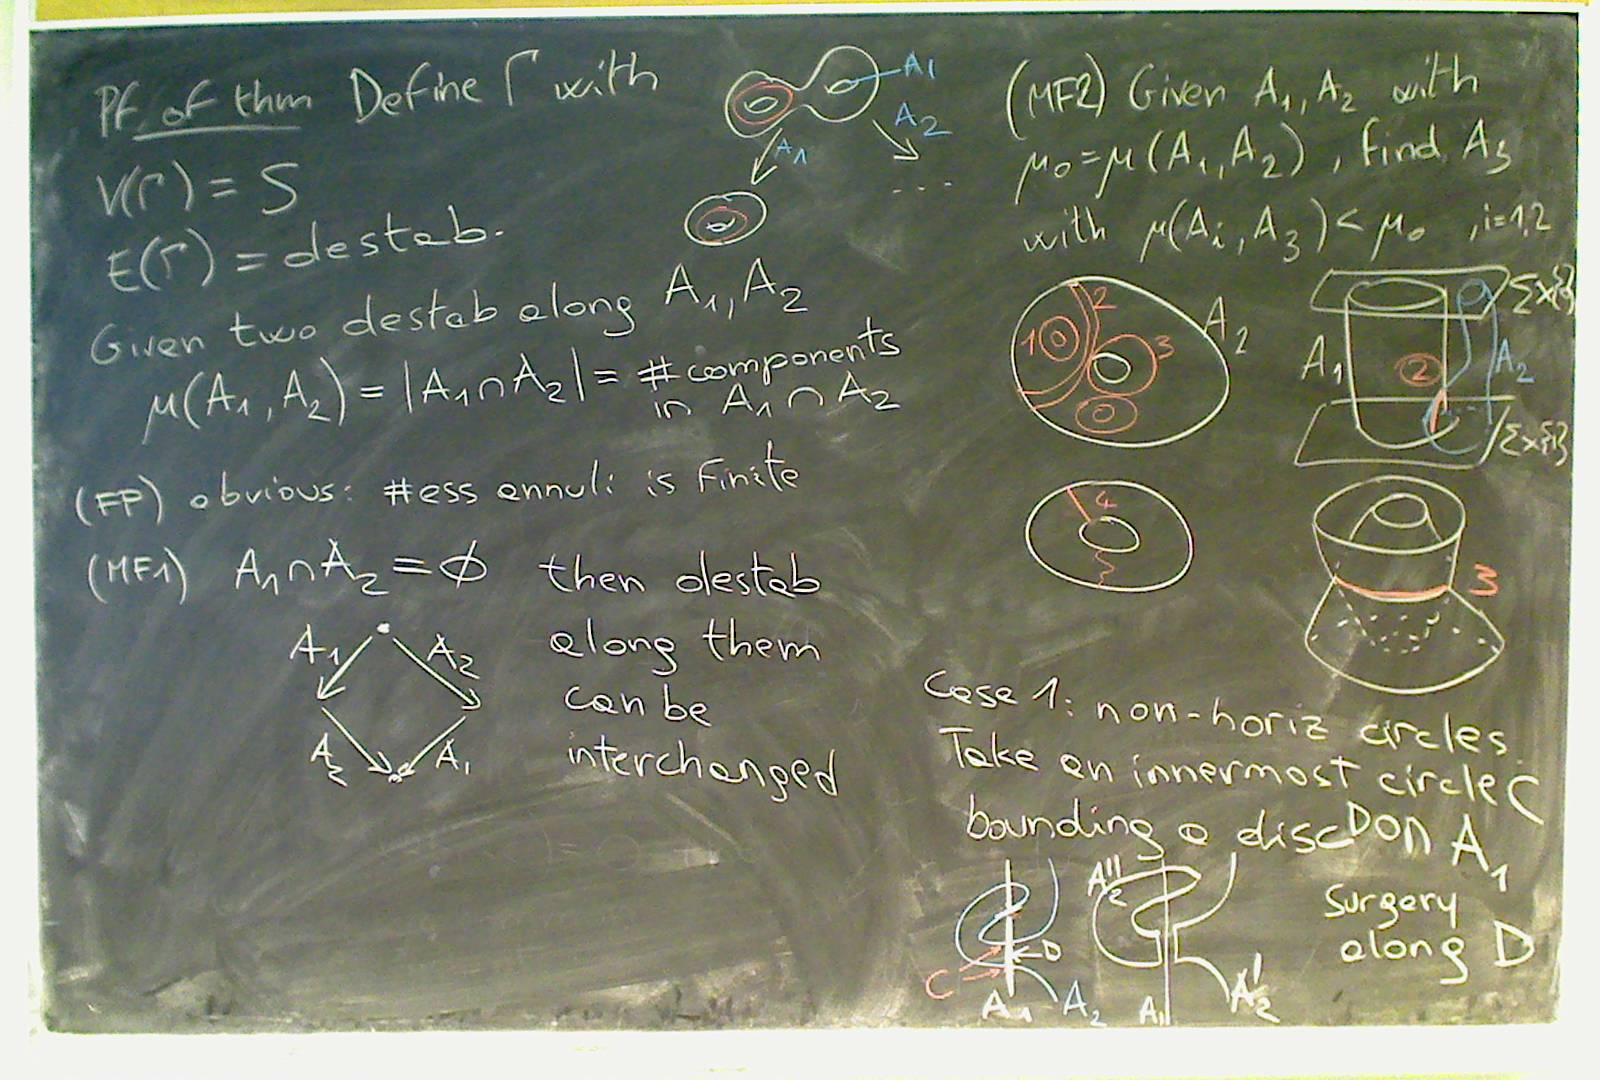 Pf. of thm Define Γ with
V(Γ) = S
E(Γ) = destab.
Given two destab along A₁, A₂
μ(A₁, A₂) = |A₁∩A₂| = # components
in A₁∩A₂
(FP) obvious: #ess annuli is finite
(MF1) A₁∩A₂ = ∅ then destab
along them
can be
interchanged
A₁ A₂
A₂ A₁
A₁
A₂
A₁
...
(MF2) Given A₁, A₂ with
μ₀ = μ(A₁, A₂), find A₃
with μ(Aᵢ, A₃) < μ₀, i=1,2
1 2 3 A₂
Σ×{0}
A₁ 2 A₂
Σ×{1}
4
3
Case 1: non-horiz circles.
Take an innermost circle C
bounding a disc D on A₁
Surgery
along D
C D A₁ A₂
A₂'' A₁ A₂'